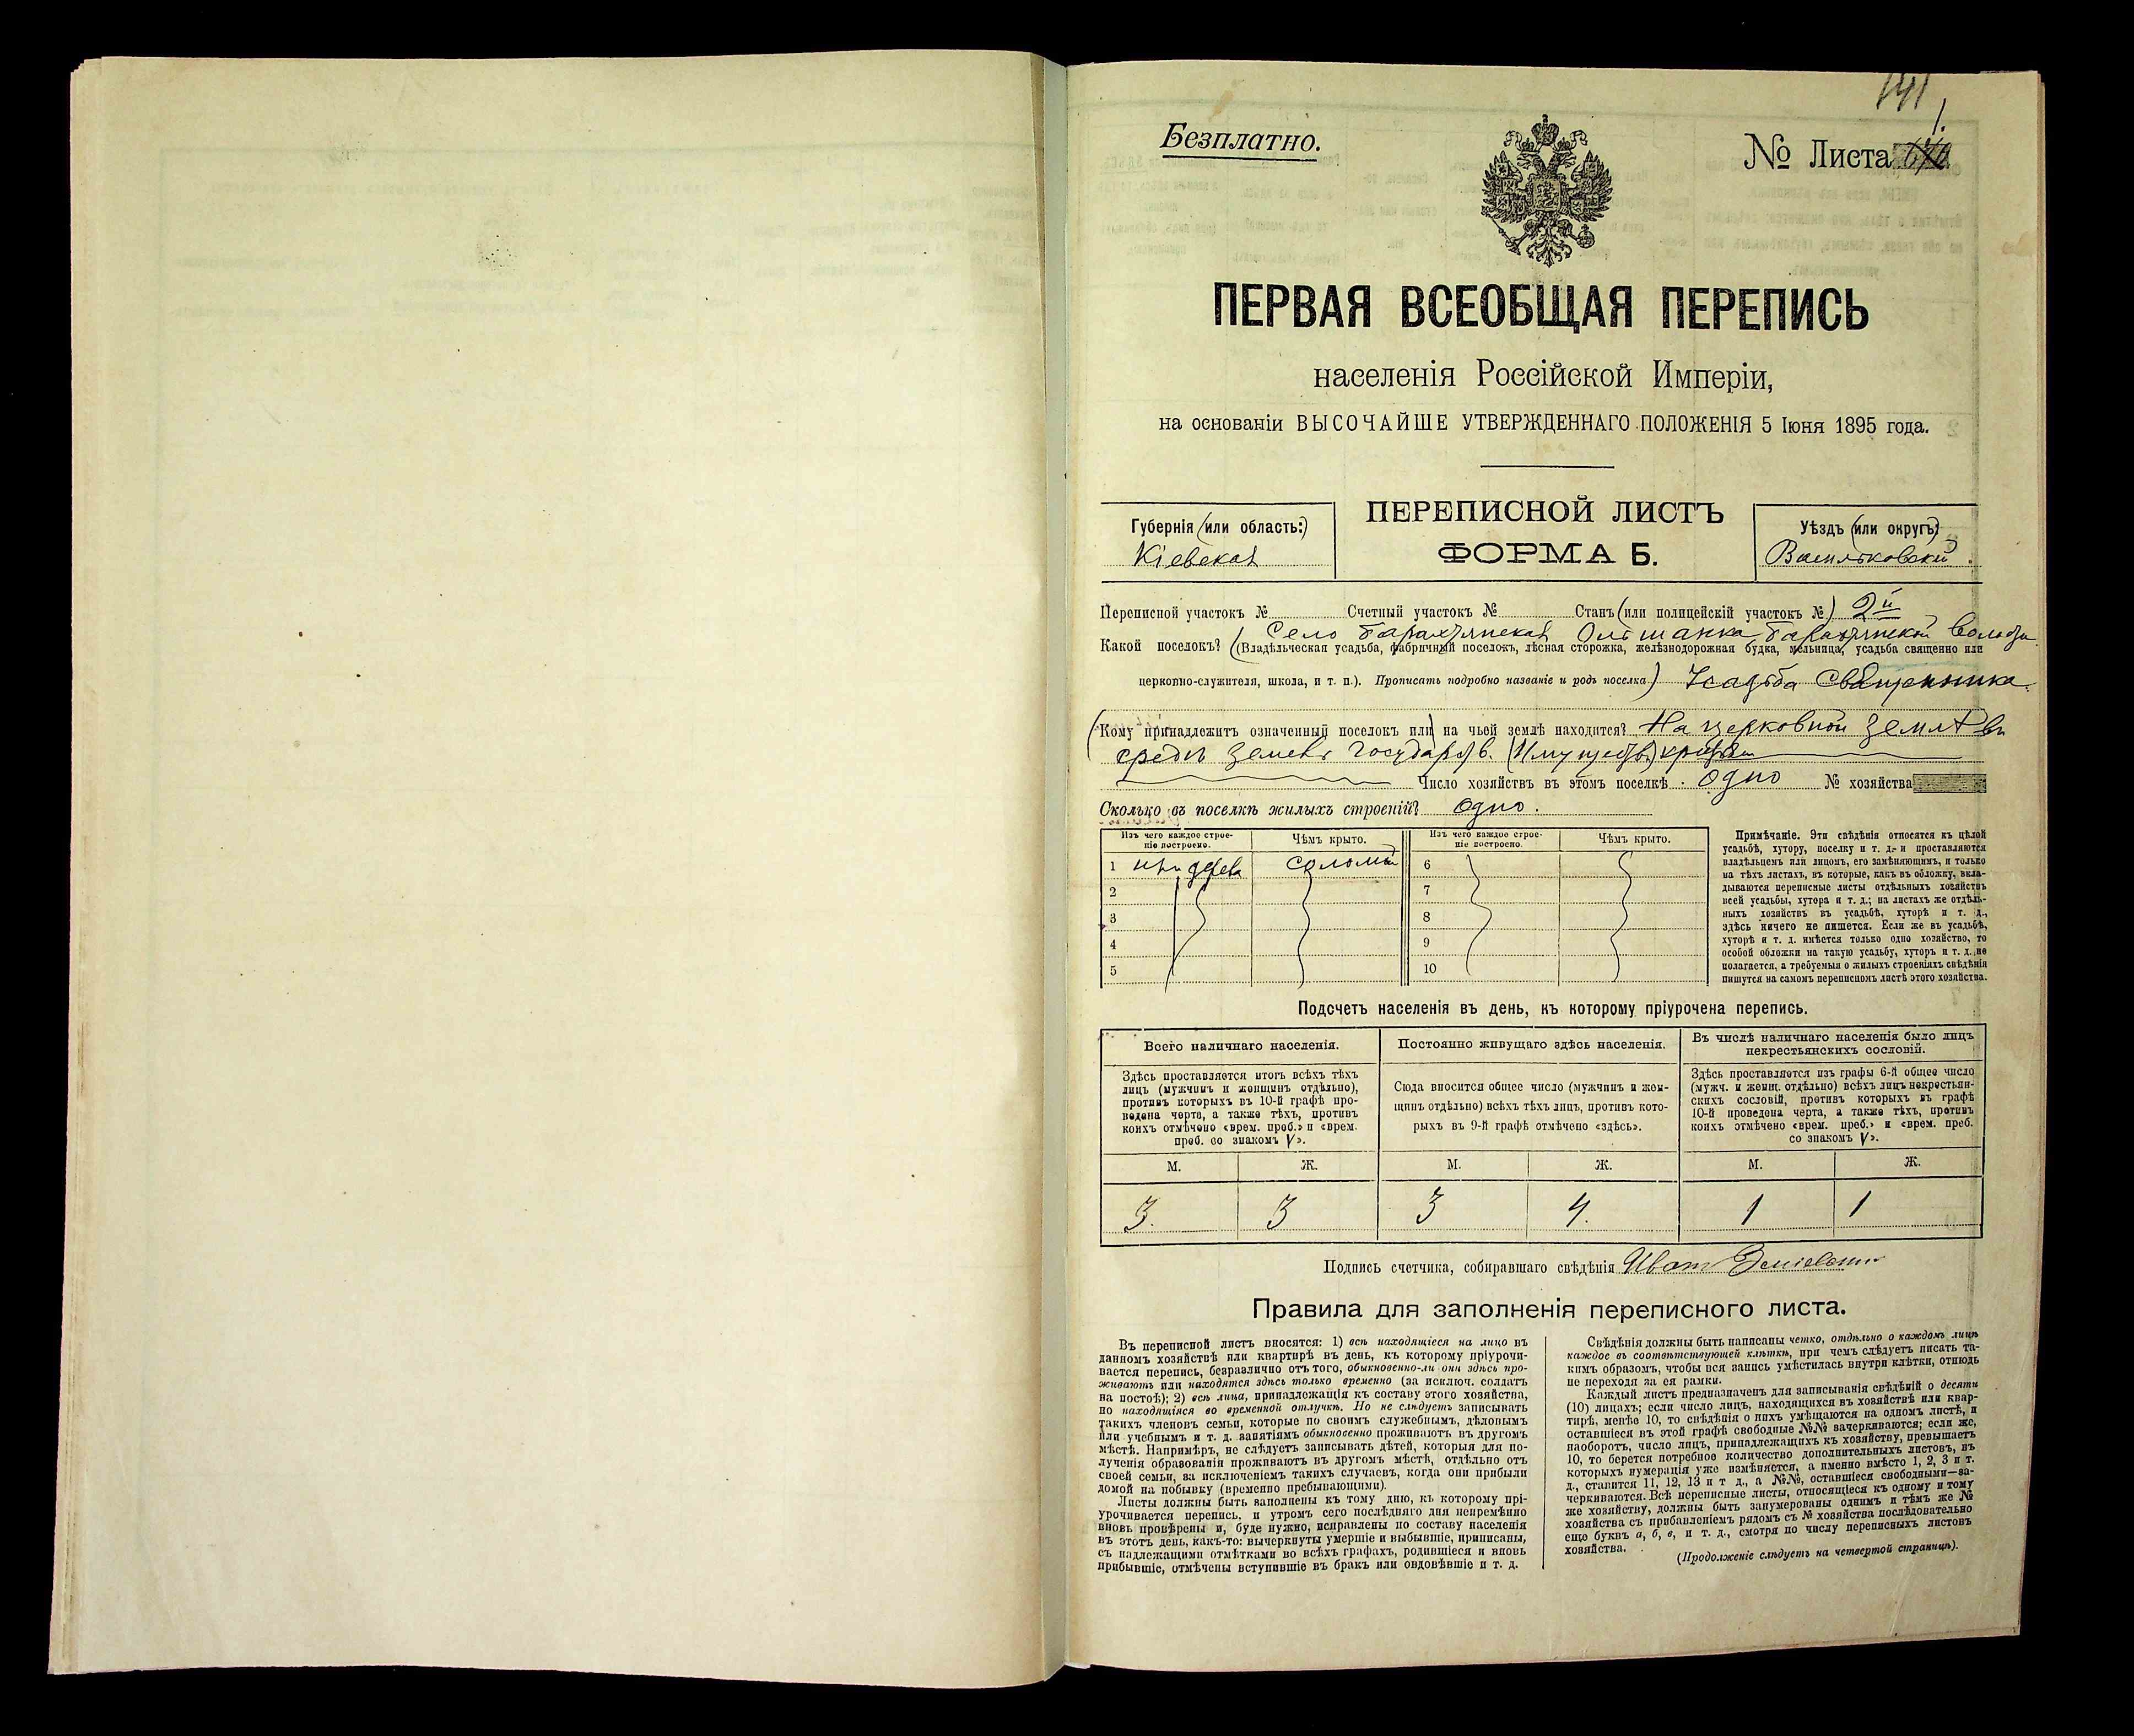 141
Безплатно.
№ Листа 1.
ПЕРВАЯ ВСЕОБЩАЯ ПЕРЕПИСЬ
населенія Россійской Имперіи,
на основаніи ВЫСОЧАЙШЕ УТВЕРЖДЕННАГО ПОЛОЖЕНІЯ 5 Іюня 1895 года.
Губернія (или область:)
Кіевская
ПЕРЕПИСНОЙ ЛИСТЪ
ФОРМА Б.
Уѣздъ (или округъ)
Васильковскій
Переписной участокъ № Счетный участокъ № Станъ (или полицейскій участокъ №) 2й
Село Барахтянская Ольшанка, Барахтянской волости
Какой поселокъ? (Владѣльческая усадьба, фабричный поселокъ, лѣсная сторожка, желѣзнодорожная будка, мельница, усадьба священно или
церковно-служителя, школа, и т. п.). Прописать подробно названіе и родъ поселка) Усадьба Священника.
(Кому принадлежитъ означенный поселокъ или) на чьей землѣ находится? На церковной землѣ въ
среди земель государств. (Имуществ.)
Число хозяйствъ въ этомъ поселкѣ. одно № хозяйства
Сколько въ поселкѣ жилыхъ строеній? одно.
Изъ чего каждое строе-
ніе построено.
Чѣмъ крыто.
Изъ чего каждое строе-
ніе построено.
Чѣмъ крыто.
1 изъ дерева соломой 6
2 7
3 8
4 9
5 10
Примѣчаніе. Эти свѣдѣнія относятся къ цѣлой
усадьбѣ, хутору, поселку и т. д. и проставляются
владѣльцемъ или лицомъ, его замѣняющимъ, и только
на тѣхъ листахъ, въ которые, какъ въ обложку, вкла-
дываются переписные листы отдѣльныхъ хозяйствъ
всей усадьбы, хутора и т. д.; на листахъ же отдѣль-
ныхъ хозяйствъ въ усадьбѣ, хуторѣ и т. д.,
здѣсь ничего не пишется. Если же въ усадьбѣ,
хуторѣ и т. д. имѣется только одно хозяйство, то
особой обложки на такую усадьбу, хуторъ и т. д. не
полагается, а требуемыя о жилыхъ строеніяхъ свѣдѣнія
пишутся на самомъ переписномъ листѣ этого хозяйства.
Подсчетъ населенія въ день, къ которому пріурочена перепись.
Всего наличнаго населенія.
Здѣсь проставляется итогъ всѣхъ тѣхъ
лицъ (мужчинъ и женщинъ отдѣльно),
противъ которыхъ въ 10-й графѣ про-
ведена черта, а также тѣхъ, противъ
коихъ отмѣчено «врем. преб.» и «врем.
преб. со знакомъ V».
Постоянно живущаго здѣсь населенія.
Сюда вносится общее число (мужчинъ и жен-
щинъ отдѣльно) всѣхъ тѣхъ лицъ, противъ кото-
рыхъ въ 9-й графѣ отмѣчено «здѣсь».
Въ числѣ наличнаго населенія было лицъ
некрестьянскихъ сословій.
Здѣсь проставляется изъ графы 6-й общее число
(мужч. и женщ. отдѣльно) всѣхъ лицъ некрестьян-
скихъ сословій, противъ которыхъ въ графѣ
10-й проведена черта, а также тѣхъ, противъ
коихъ отмѣчено «врем. преб.» и «врем. преб.
со знакомъ V».
М. Ж. М. Ж. М. Ж.
3. 3 3 4. 1 1
Подпись счетчика, собиравшаго свѣдѣнія Иванъ
Правила для заполненія переписного листа.
Въ переписной листъ вносятся: 1) всѣ находящіеся на лицо въ
данномъ хозяйствѣ или квартирѣ въ день, къ которому пріурочи-
вается перепись, безразлично отъ того, обыкновенно-ли они здѣсь про-
живаютъ или находятся здѣсь только временно (за исключ. солдатъ
на постоѣ); 2) всѣ лица, принадлежащія къ составу этого хозяйства,
но находящіяся во временной отлучкѣ. Но не слѣдуетъ записывать
такихъ членовъ семьи, которые по своимъ служебнымъ, дѣловымъ
или учебнымъ и т. д. занятіямъ обыкновенно проживаютъ въ другомъ
мѣстѣ. Напримѣръ, не слѣдуетъ записывать дѣтей, которыя для по-
лученія образованія проживаютъ въ другомъ мѣстѣ, отдѣльно отъ
своей семьи, за исключеніемъ такихъ случаевъ, когда они прибыли
домой на побывку (временно пребывающими).
Листы должны быть заполнены къ тому дню, къ которому прі-
урочивается перепись, и утромъ сего послѣдняго дня непремѣнно
вновь провѣрены и, буде нужно, исправлены по составу населенія
въ этотъ день, какъ-то: вычеркнуты умершіе и выбывшіе, приписаны,
съ надлежащими отмѣтками во всѣхъ графахъ, родившіеся и вновь
прибывшіе, отмѣчены вступившіе въ бракъ или овдовѣвшіе и т. д.
Свѣдѣнія должны быть написаны четко, отдѣльно о каждомъ лицѣ
каждое въ соотвѣтствующей клѣткѣ, при чемъ слѣдуетъ писать та-
кимъ образомъ, чтобы вся запись умѣстилась внутри клѣтки, отнюдь
не переходя за ея рамки.
Каждый листъ предназначенъ для записыванія свѣдѣній о десяти
(10) лицахъ; если число лицъ, находящихся въ хозяйствѣ или квар-
тирѣ, менѣе 10, то свѣдѣнія о нихъ умѣщаются на одномъ листѣ, и
оставшіеся въ этой графѣ свободные №№ зачеркиваются; если же,
наоборотъ, число лицъ, принадлежащихъ къ хозяйству, превышаетъ
10, то берется потребное количество дополнительныхъ листовъ, въ
которыхъ нумерація уже измѣняется, а именно вмѣсто 1, 2, 3 и т.
д., ставится 11, 12, 13 и т д., а №№, оставшіеся свободными—за-
черкиваются. Всѣ переписные листы, относящіеся къ одному и тому
же хозяйству, должны быть занумерованы однимъ и тѣмъ же №
хозяйства съ прибавленіемъ рядомъ съ № хозяйства послѣдовательно
еще буквъ а, б, в, и т. д., смотря по числу переписныхъ листовъ
хозяйства.
(Продолженіе слѣдуетъ на четвертой страницѣ).